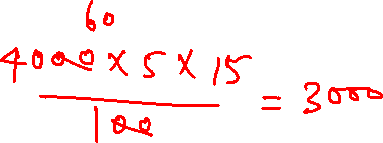 60
4000 × 5 × 15
100
= 3000